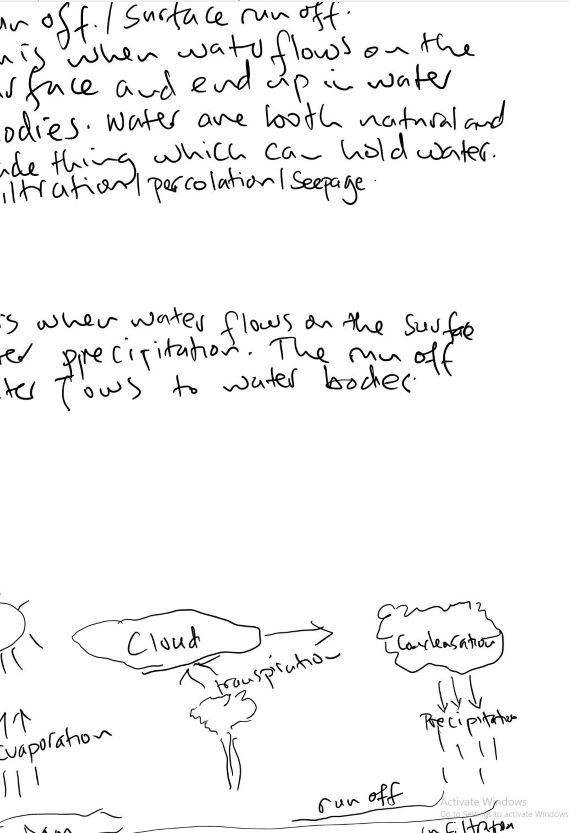 un off. / surface run off.
his is when water flows on the
rface and end up in water
odies. water are both natural and
ade thing which can hold water.
iltration / percolation / seepage
is when water flows on the surface
ter precipitation. The run off
ter flows to water bodies.
Cloud
Condensation
transpiration
Precipitation
Evaporation
run off
infiltration
Activate Windows
Go to Settings to activate Windows